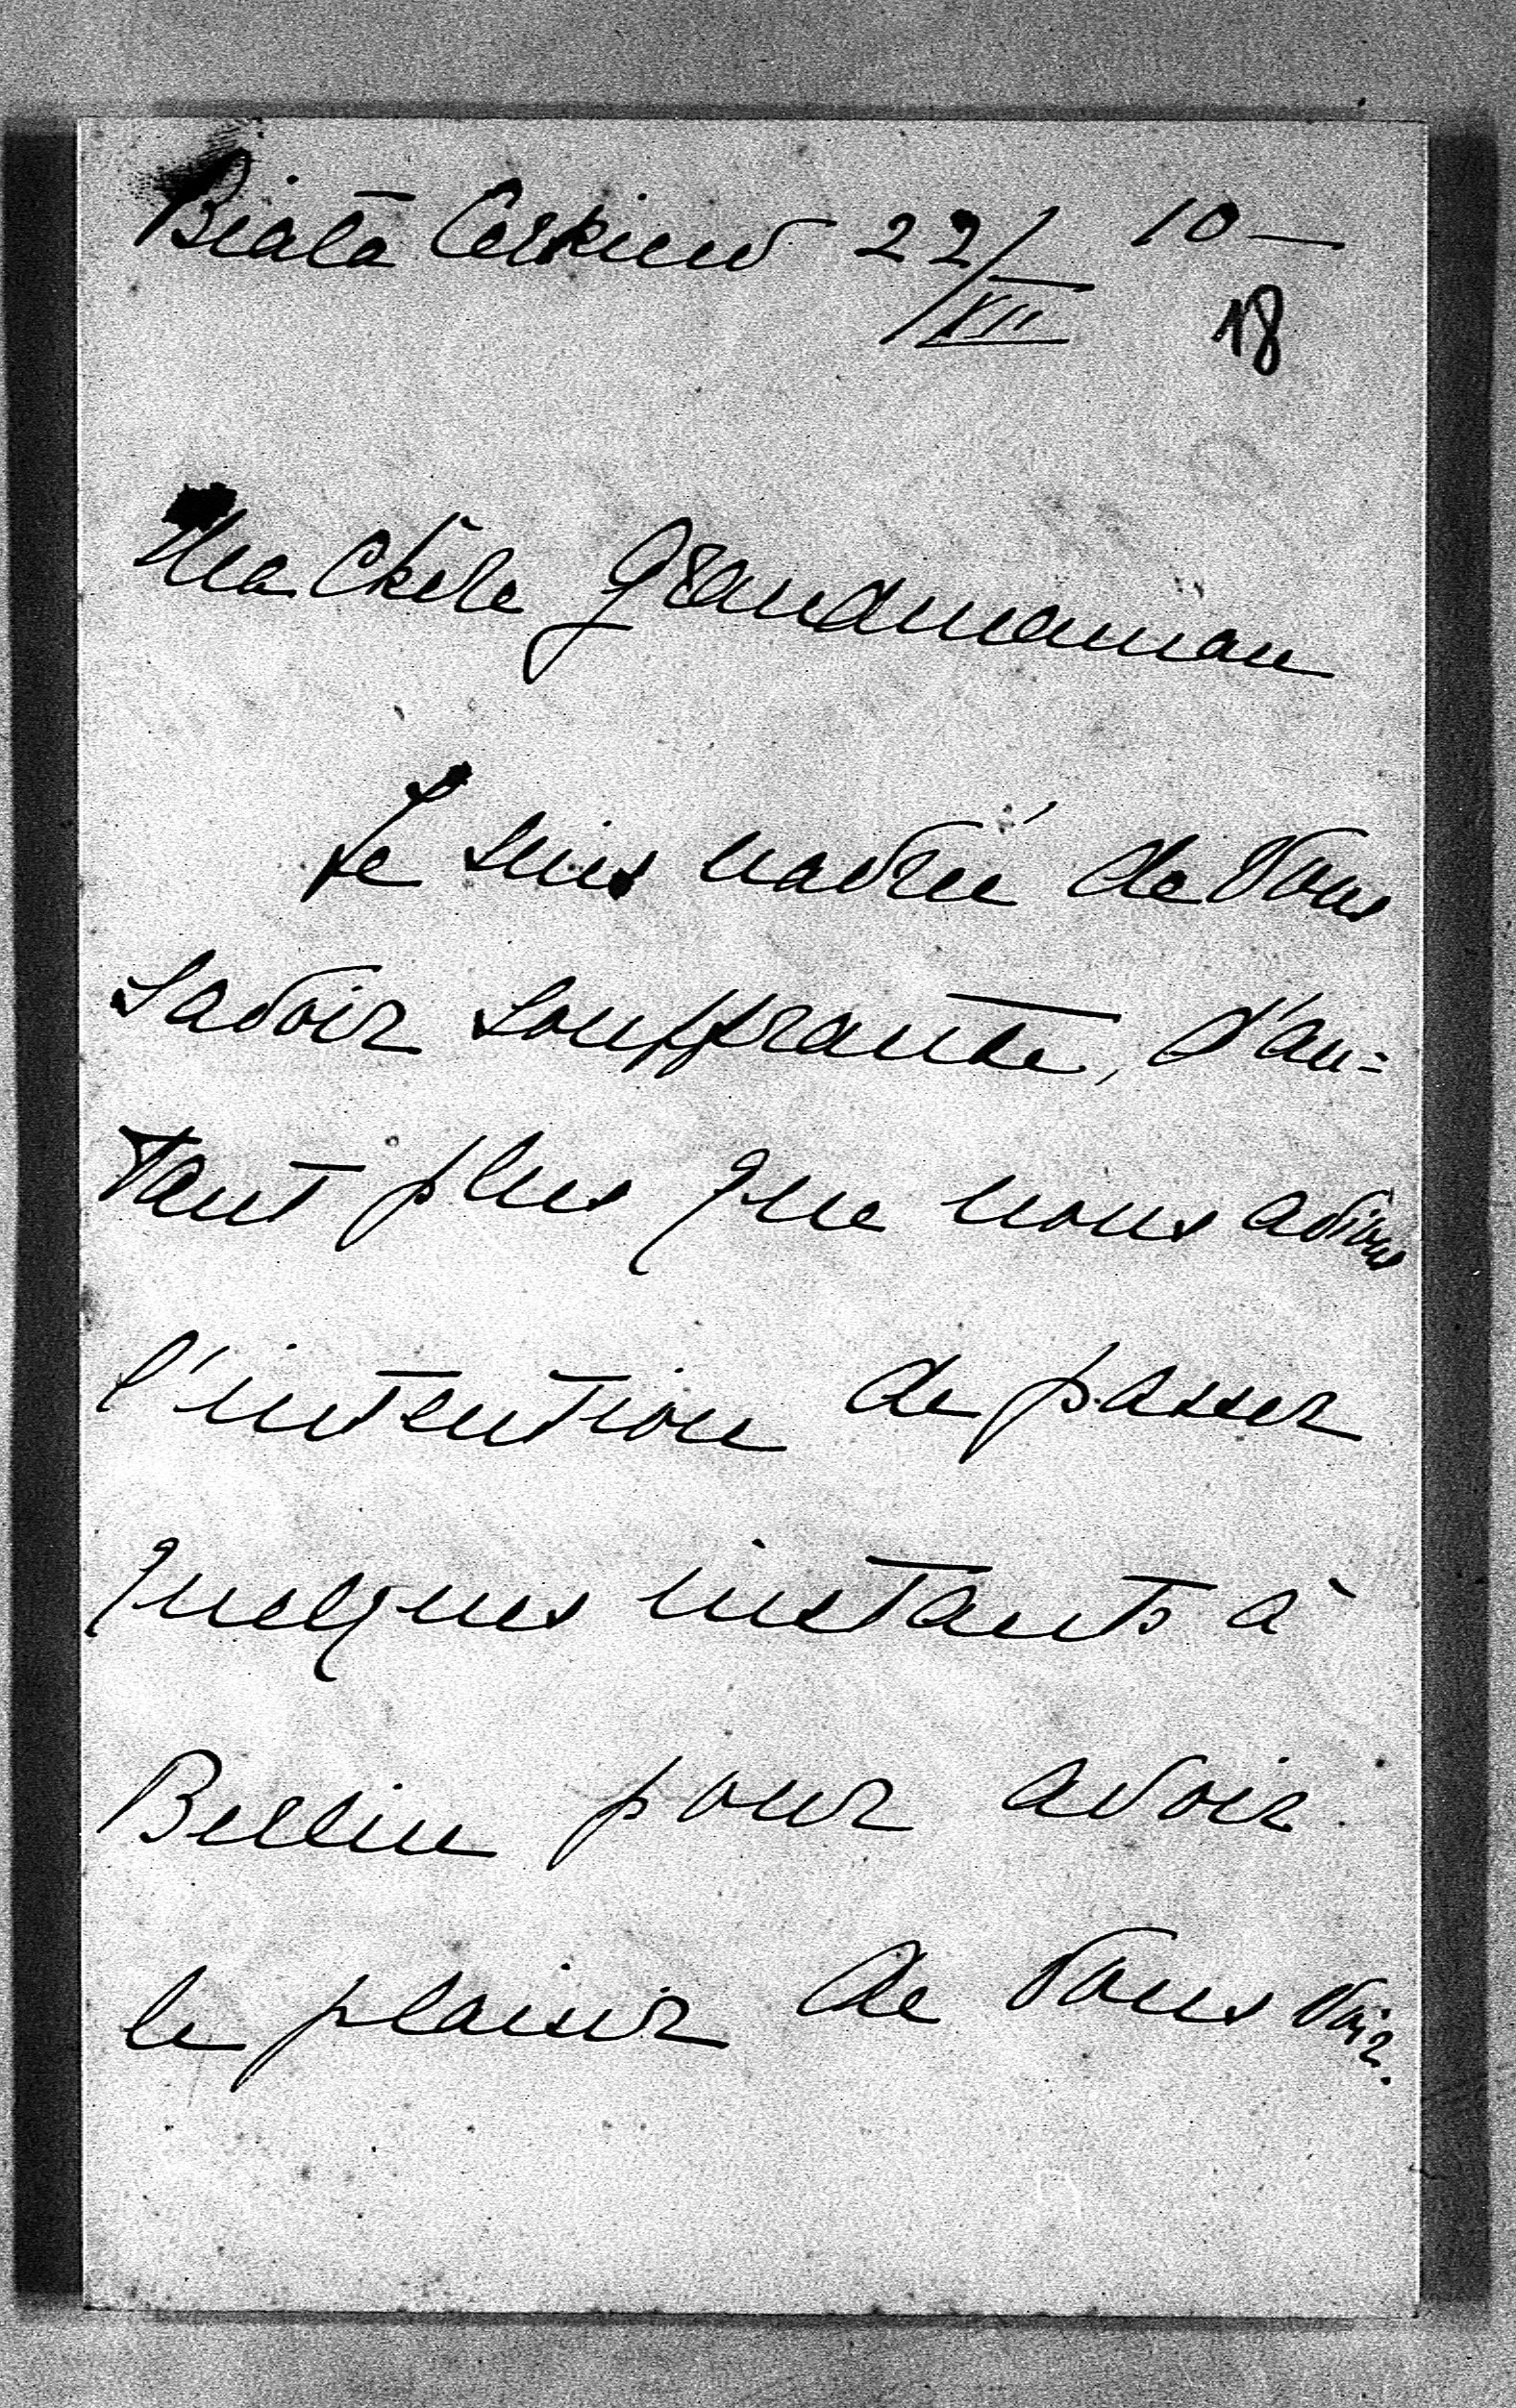 Biała Cerkiew 22/XII 10
18
Ma chère Grandmaman
Je suis navrée de Vous
savoir souffrante, d'au=
tant plus que nous avions
l'intention de passer
quelques instants à
Berlin pour avoir
le plaisir de Vous voir.